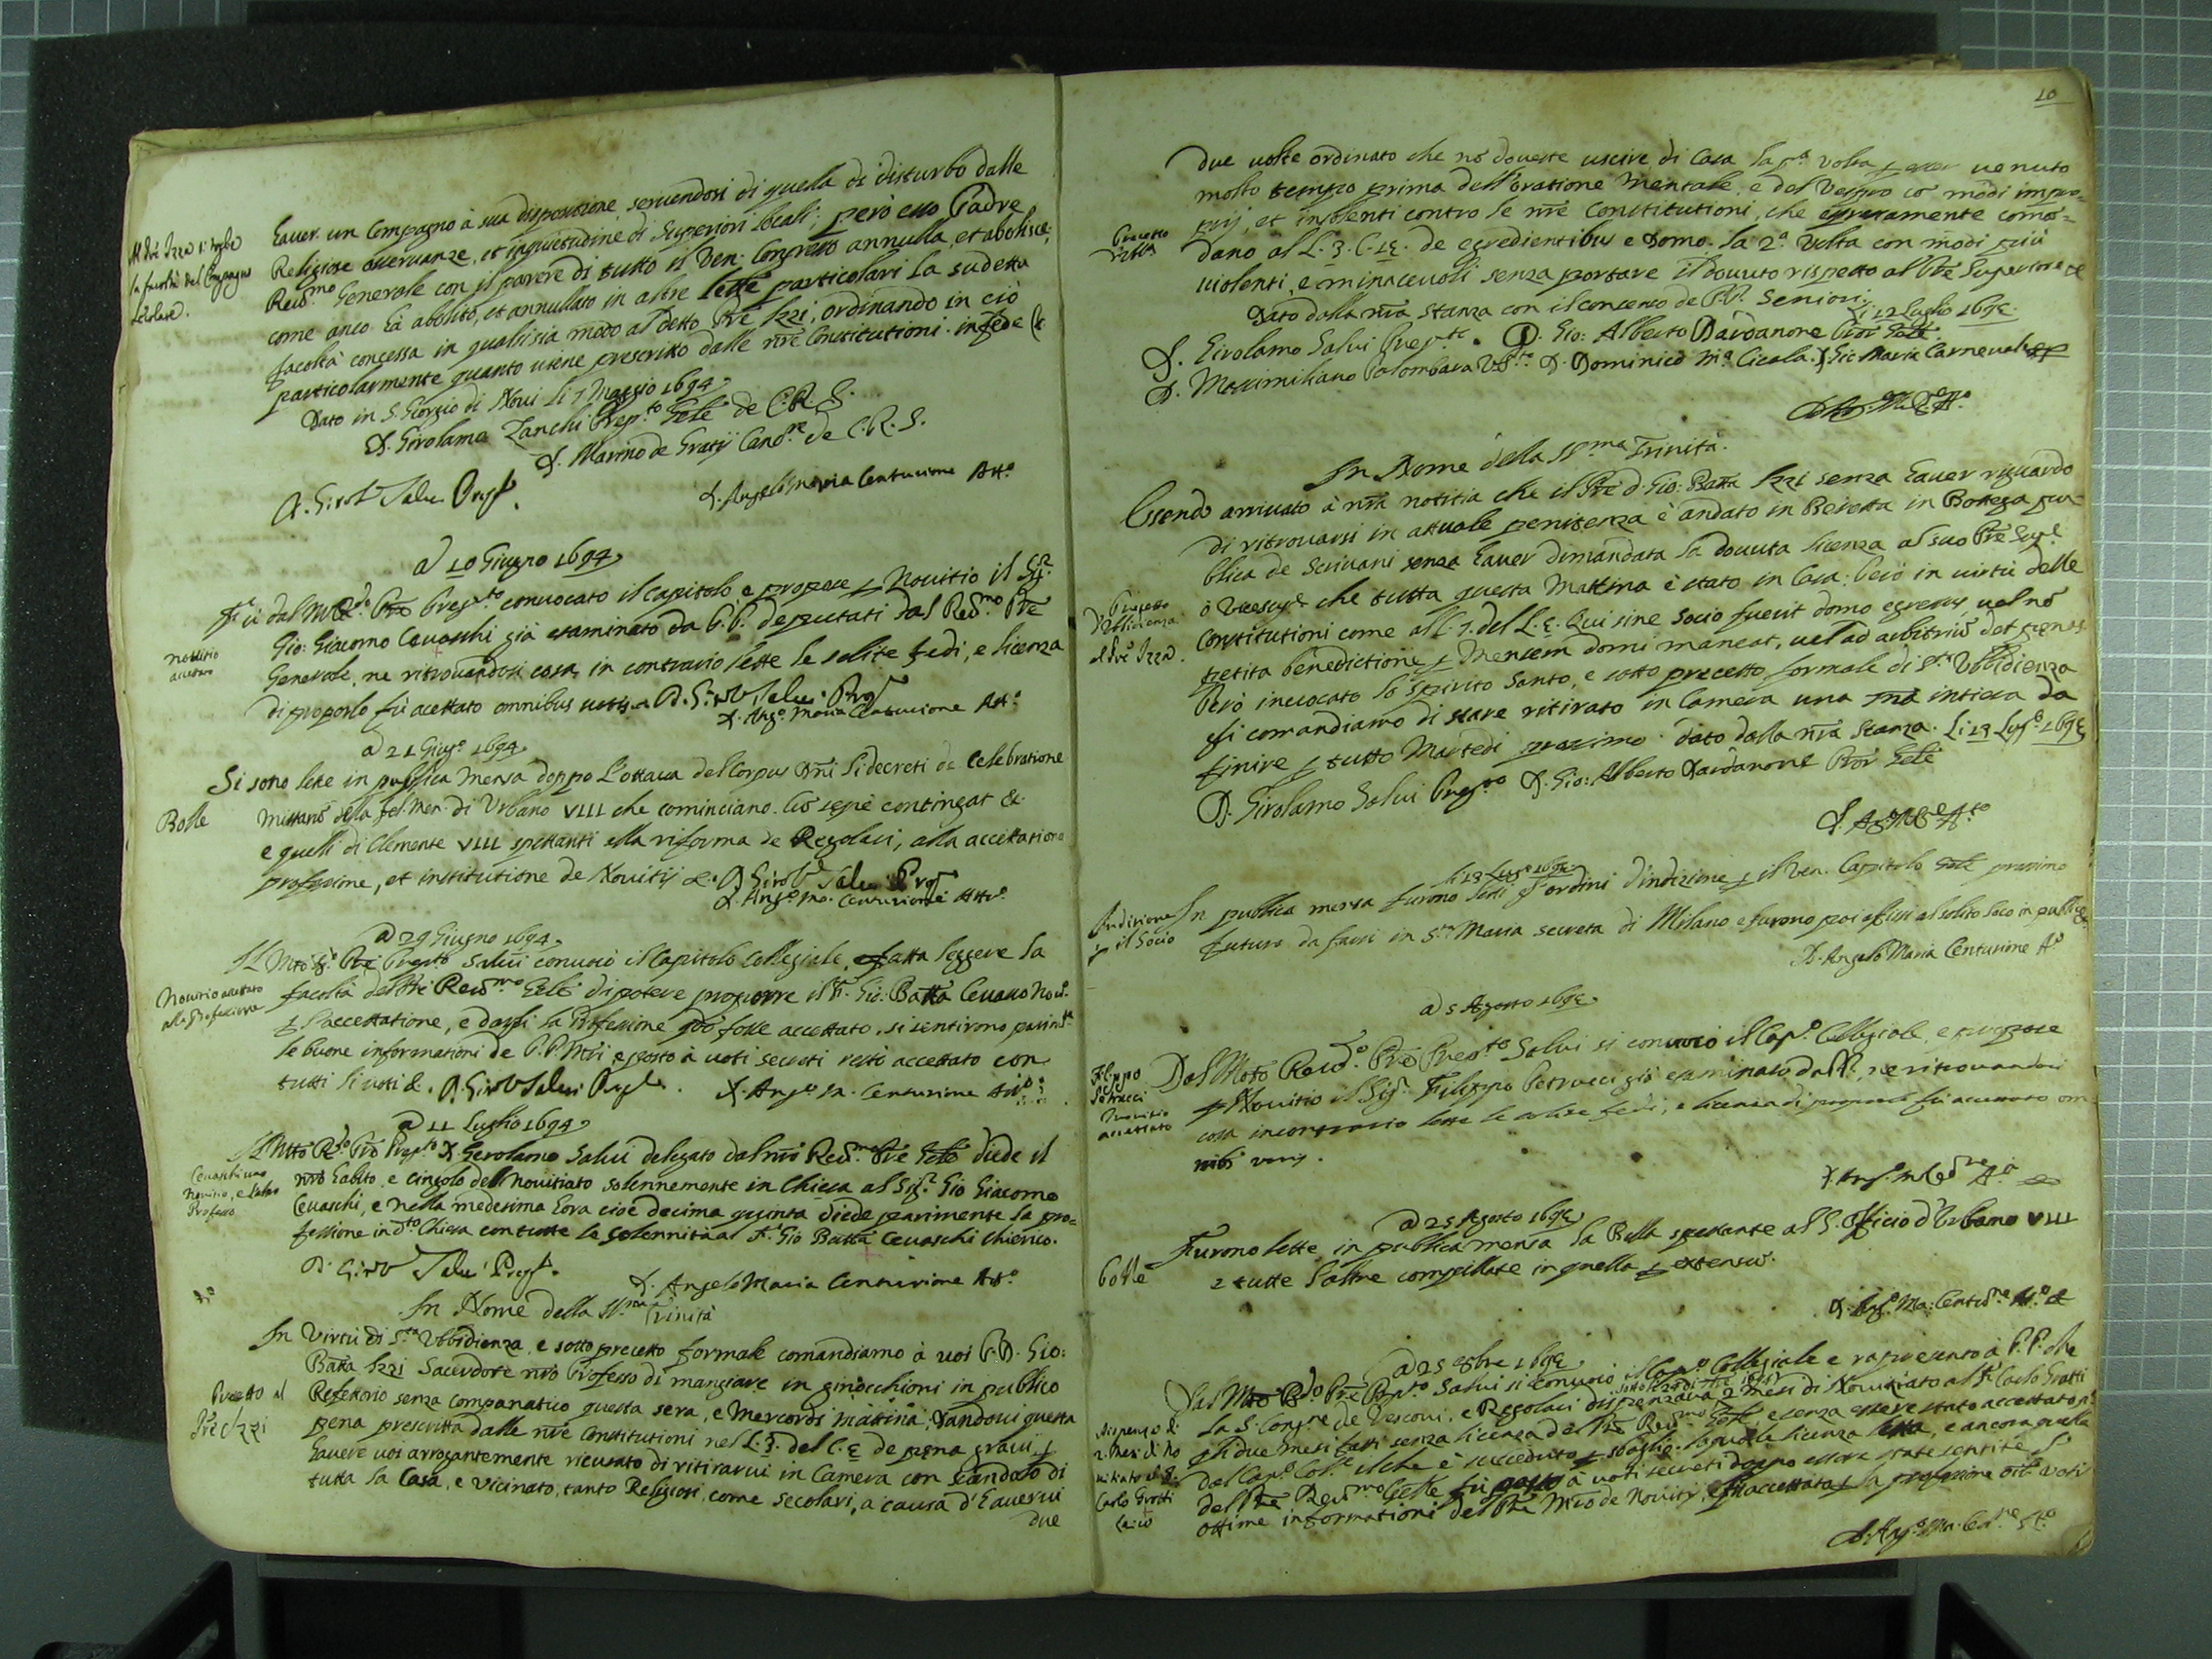 Al Prè Izzi si toglie
la facoltà del Compagno
secolare.
haver un Compagno à sua dispositione, servendosi di quella di disturbo dalle
Religiose osservanze, et inquietudine di Superiori locali; però esso Padre
Reud.mo Generale con il parere di tutto il Ven. Congresso annulla, et abolisce,
come anco hà abolito, et annullato in altre lettere particolari la sudetta
facoltà concessa in qualsisia modo al detto Prè Izzi, ordinando in ciò
particolarmente quanto viene prescritto dalle nrē Constitutioni. in fede &
Dato in S. Giorgio di Novi li 7 Maggio 1694
D. Girolamo Zanchi Prep.to Gēle de C.R.S.
D. Marino de Gratij Canc.re de C.R.S.
D. Girol.º Salvi Prep.
D. Angelo Maria Centurione Att.º
a 10 Giugno 1694
Novitio
accettato
Fù dal M.R.do Prē Prep.to convocato il Capitolo, e propose p Novitio il Sig.r
Gio: Giacomo Cevaschi già esaminato da P.P. deputati dal Reud.mo Prē
Generale, ne ritrovandosi cosa in contrario lette le solite fedi, e licenza
di proporlo fù accettato omnibus votis. D. Girol.º Salvi Prep.
D. Ang.º Maria Centurione Att.º
a 21 Giug.º 1694
Bolle
Si sono lette in publica mensa doppo l'ottava del Corpus Dni li decreti de Celebratione
Missarū della fel. mem. di Urbano VIII che cominciano. Cū sepè contingat &.
e quelli di Clemente VIII spettanti alla riforma de Regolari, alla accettatione
professione, et institutione de Novitij &. D. Girol.º Salvi Prep.
D. Ang.º Ma. Centurione Att.º
a 29 Giugno 1694
Novitio accettato
alla Professione
Il Mto R.º Prē Prep.to Salvi convocò il Capitolo Collegiale, e fatta leggere la
facoltà del Prē Reud.mo Gēle di potere proporre il Fr. Gio: Batta Cevasco Nov.
p l'accettatione, e darsi la Professione qdō fosse accettato, si sentirono parim.te
le buone informationi de P.P. Mrī e posto à voti secreti restò accettato con
tutti li voti &. D. Girol.º Salvi Prep.to. D. Ang.º M. Centurione Att.º
a 11 Luglio 1694
Cevaschi uno
Novitio, e l'altro
Professo
Il Mto R.do Prē Prep.to D. Gerolamo Salvi delegato dal nrō Reud.mo Prē Gēle diede il
nrō habito, e cingolo del Novitiato solennemente in Chiesa al Sig.r Gio Giacomo
Cevaschi, e nella medesima hora cioè decima quinta diede parimente la pro=
fessione in d.ta Chiesa con tutte le solennità al Fr. Gio Batta Cevaschi Chierico.
D. Girol.º Salvi Prep.
D. Angelo Maria Centurione Att.º
In Nome della SS.ma Trinità
Precetto al
Prē Izzi
In Virtù di S.ta Ubbidienza, e sotto precetto formale comandiamo à voi P.D. Gio:
Batta Izzi Sacerdote nrō Professo di mangiare in ginocchioni in publico
Refettorio senza companatico questa sera, e Mercordi mattina; Dandovi questa
pena prescritta dalle nrē Constitutioni nel L. 3. del C. 5 de pena gravi p
havere voi arrogantemente ricusato di ritirarvi in Camera con scandolo di
tutta la Casa, e vicinato, tanto Religiosi, come secolari, a causa d'havervi
due
10
due volte ordinato che nō doveste uscire di Casa la p.a volta p esser venuto
molto tempo prima dell'oratione mentale, e del Vespro cō modi impro=
prij, et insolenti contro le nrē Constitutioni, che espressamente coman=
dano al L. 3. C. 15. de egredientibus e Domo. la 2.a volta con modi più
violenti, e minacevoli senza portare il dovuto rispetto al Prē Superiore &
Dato dalla nrā stanza con il consenso de P.P. Seniori. Li 12 Luglio 1695.
D. Girolamo Salvi Prep.to. D. Gio: Alberto Dardanone Prov. Gēle
D. Massimiliano Palombara D. Dominico M.a Cicala. D. Gio Maria Carnevale
In Nome della SS.ma Trinità.
Precetto
d'Ubbidienza
al Prē Izzi.
Essendo arrivato à nrā notitia che il Prē D. Gio: Batta Izzi senza haver riguardo
di ritrovarsi in attuale penitenza è andato in Beretta in Bottega pu=
blica de Scrivani senza haver dimandata la dovuta licenza al suo Prē Sup.e
ò Vicesup.e che tutta questa Mattina è stato in Casa; Però in virtù delle
Constitutioni come al C. 7. del L. 5. Qui sine socio fuerit domo egressus, vel nō
petita benedictione p Mensem domi maneat, vel ad arbitriū det penas
Però invocato lo Spirito Santo, e sotto precetto formale di S.ta Ubbidienza
li comandiamo di stare ritirato in Camera una intiera da
finire p tutto Martedì prossimo. dato dalla nrā stanza. Li 13 Lug.º 1695
D. Girolamo Salvi Prep.to D. Gio: Alberto Dardanone Prov Gēle
Li 13 Lug.º 1695.
Inditione
p il Socio
In publica mensa furono letti gl'ordini d'indizione p il Ven. Capitolo Gēle prossimo
futuro da farsi in S.ta Maria secreta di Milano e furono poi affissi al solito loco in publico
D. Angelo Maria Centurione A.º
a 5 Agosto 1695.
Filippo
Petrucci
Novitio
accettato
Dal Molto Reud.º Prē Prep.to Salvi si convocò il Cap.º Collegiale, e propose
p Novitio il Sig.r Filippo Petrucci già esaminato da PP., ne ritrovandosi
cosa in contrario lette le solite fedi, e licenza di proporlo fù accettato om
nibs votis.
a 25 Agosto 1695
Bolle
Furono lette in publica mensa la Bolla spettante al S. Officio d'Urbano VIII
e tutte l'altre compillate in quella p extensū.
D. Ang.º Ma: Centur.ne At.º &
a 25 1695.
Dispensa di
2 Mesi di No
vitiato al Fr.
Carlo Grotti
Laico
Dal Mto R.do Prē Prep.to Salvi si convocò il Cap.º Collegiale e rapresentò à P.P. che
la S. Cong.ne de Vescovi, e Regolari dispensava 2 mesi di Novitiato al Fr. Carlo Grotti
gli due mesi fatti senza licenza del Prē Reud.mo Gēle, e senza essere stato accettato
dal Cap.º Coll.e il che è succeduto p sbaglio. la quale licenza letta, e ancora quella
del Prē Reud.mo Gēle fù posto à voti secreti doppo essere state sentite l'
ottime informationi del Prē Mrō de Novitij, e fù accettato p la professione oibs voti